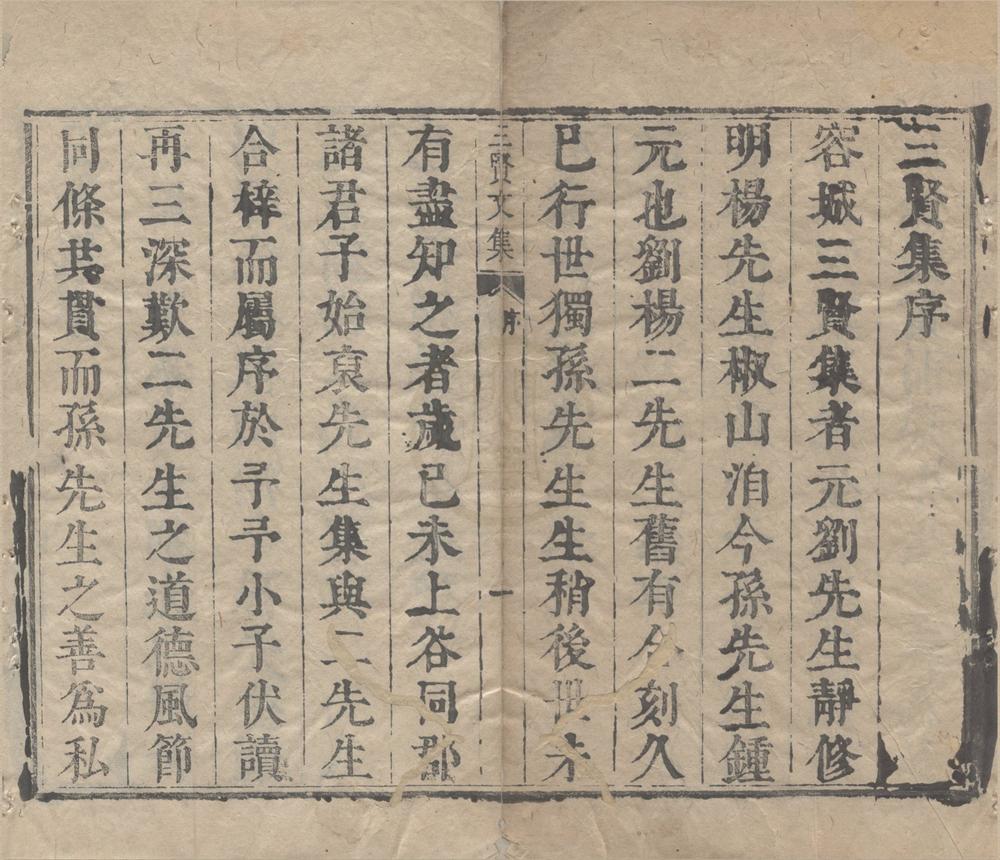 三賢集序
容城三賢集者元劉先生靜修
明楊先生椒山洎今孫先生鍾
元也劉楊二先生舊有合刻久
已行世獨孫先生生稍後世未
三賢文集 序 一
有盡知之者歲已未上谷同郡
諸君子始裒先生集與二先生
合梓而屬序於予予小子伏讀
再三深歎二先生之道德風節
同條共貫而孫先生之善為私